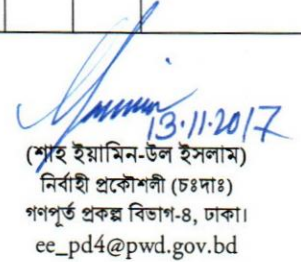 13.11.2017
(শাহ ইয়ামিন-উল ইসলাম)
নির্বাহী প্রকৌশলী (চঃদাঃ)
গণপূর্ত প্রকল্প বিভাগ-৪, ঢাকা।
ee_pd4@pwd.gov.bd